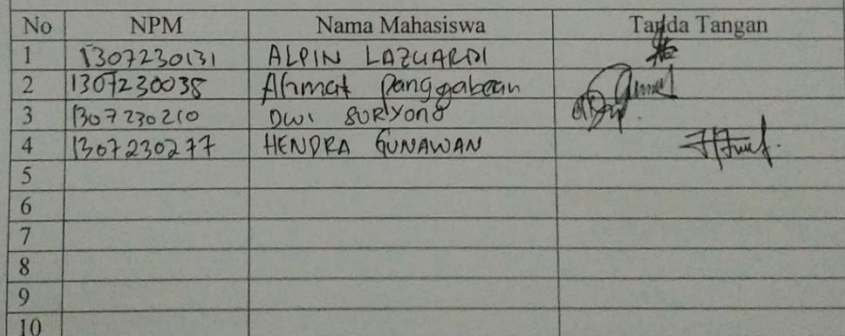 No NPM Nama Mahasiswa Tanda Tangan
1 1307230131 ALPIN LAZUARDI
2 1307230038 Ahmat Panggabean
3 1307230210 DWI SURYONO
4 1307230277 HENDRA GUNAWAN
5
6
7
8
9
10